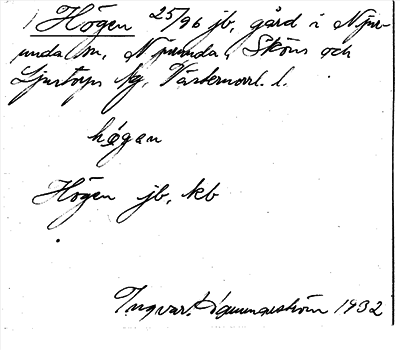 1) Högen 25/96 jb, gård i Njur-
unda sn, Njurunda, Sköns och
Ljustorps tg, Västernorrl. l.
hǫ́gan
Högen jb, kb
Ingvar 1932